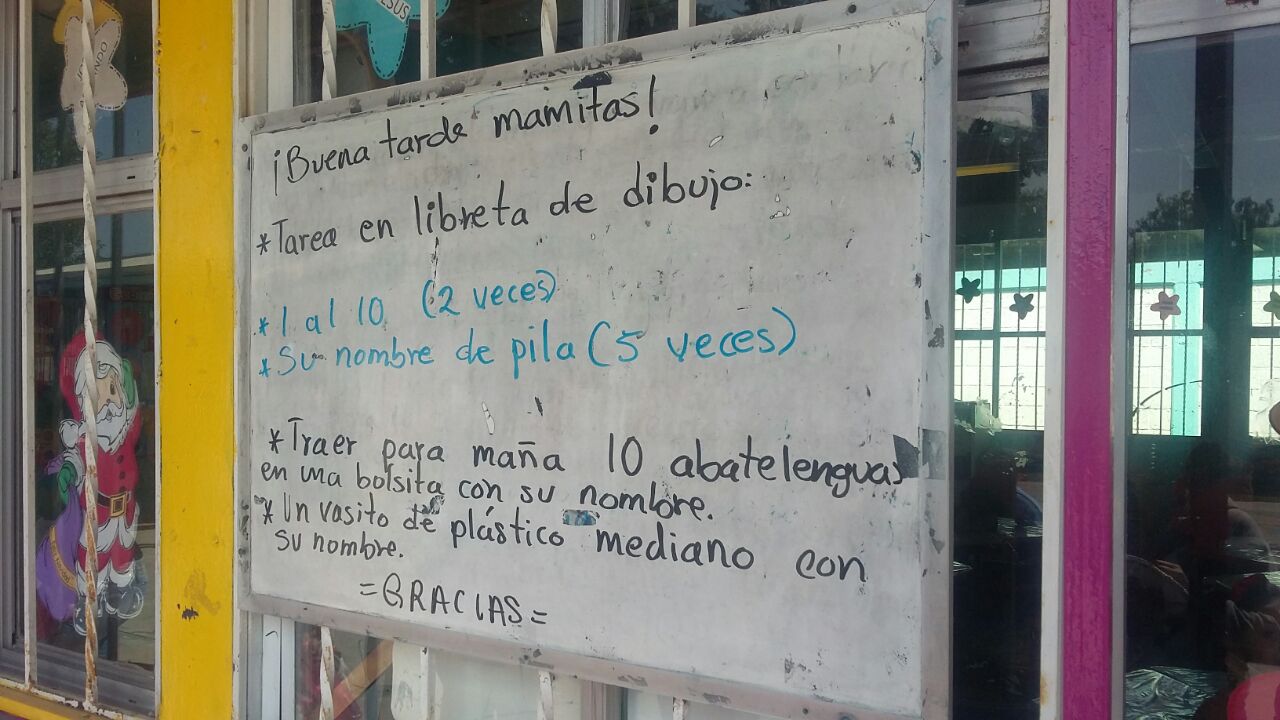 JESUS
¡Buena tarde mamitas!
*Tarea en libreta de dibujo:
*1 al 10 (2 veces)
*Su nombre de pila (5 veces)
*Traer para maña 10 abatelenguas
en una bolsita con su nombre.
*Un vasito de plástico mediano con
su nombre.
=GRACIAS=